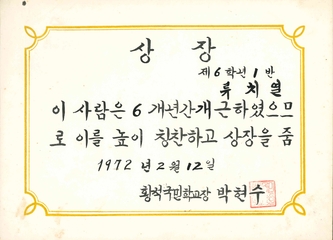 상 장
제 6 학년 1 반
류 치 열
이 사람은 6 개년간 개근하였으므
로 이를 높이 칭찬하고 상장을 줌
1972 년 2 월 12 일
황석국민학교장 박현수